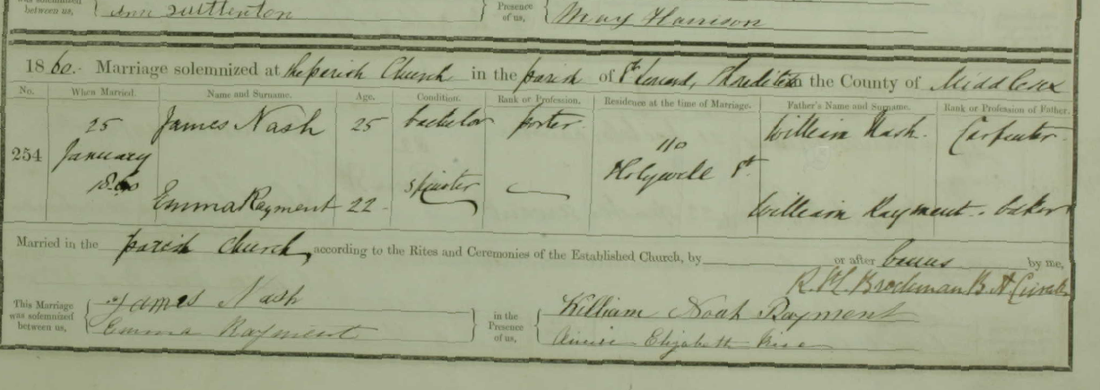 was solemnized between us, Ann Sullenton Presence of us, Mary Harrison
1860. Marriage solemnized at the parish Church in the parish of St Leonard, Shoreditch in the County of Middlesex
No. When Married. Name and Surname. Age. Condition. Rank or Profession. Residence at the time of Marriage. Father's Name and Surname. Rank or Profession of Father.
254 25 January 1860 James Nash 25 bachelor porter 110 Holywell St. William Nash. Carpenter
Emma Rayment 22 spinster William Rayment. baker
Married in the parish church, according to the Rites and Ceremonies of the Established Church, by or after banns by me,
R. H. Brockman B A Curate
This Marriage was solemnized between us, James Nash in the Presence of us, William Noah Rayment
Emma Rayment Elizabeth